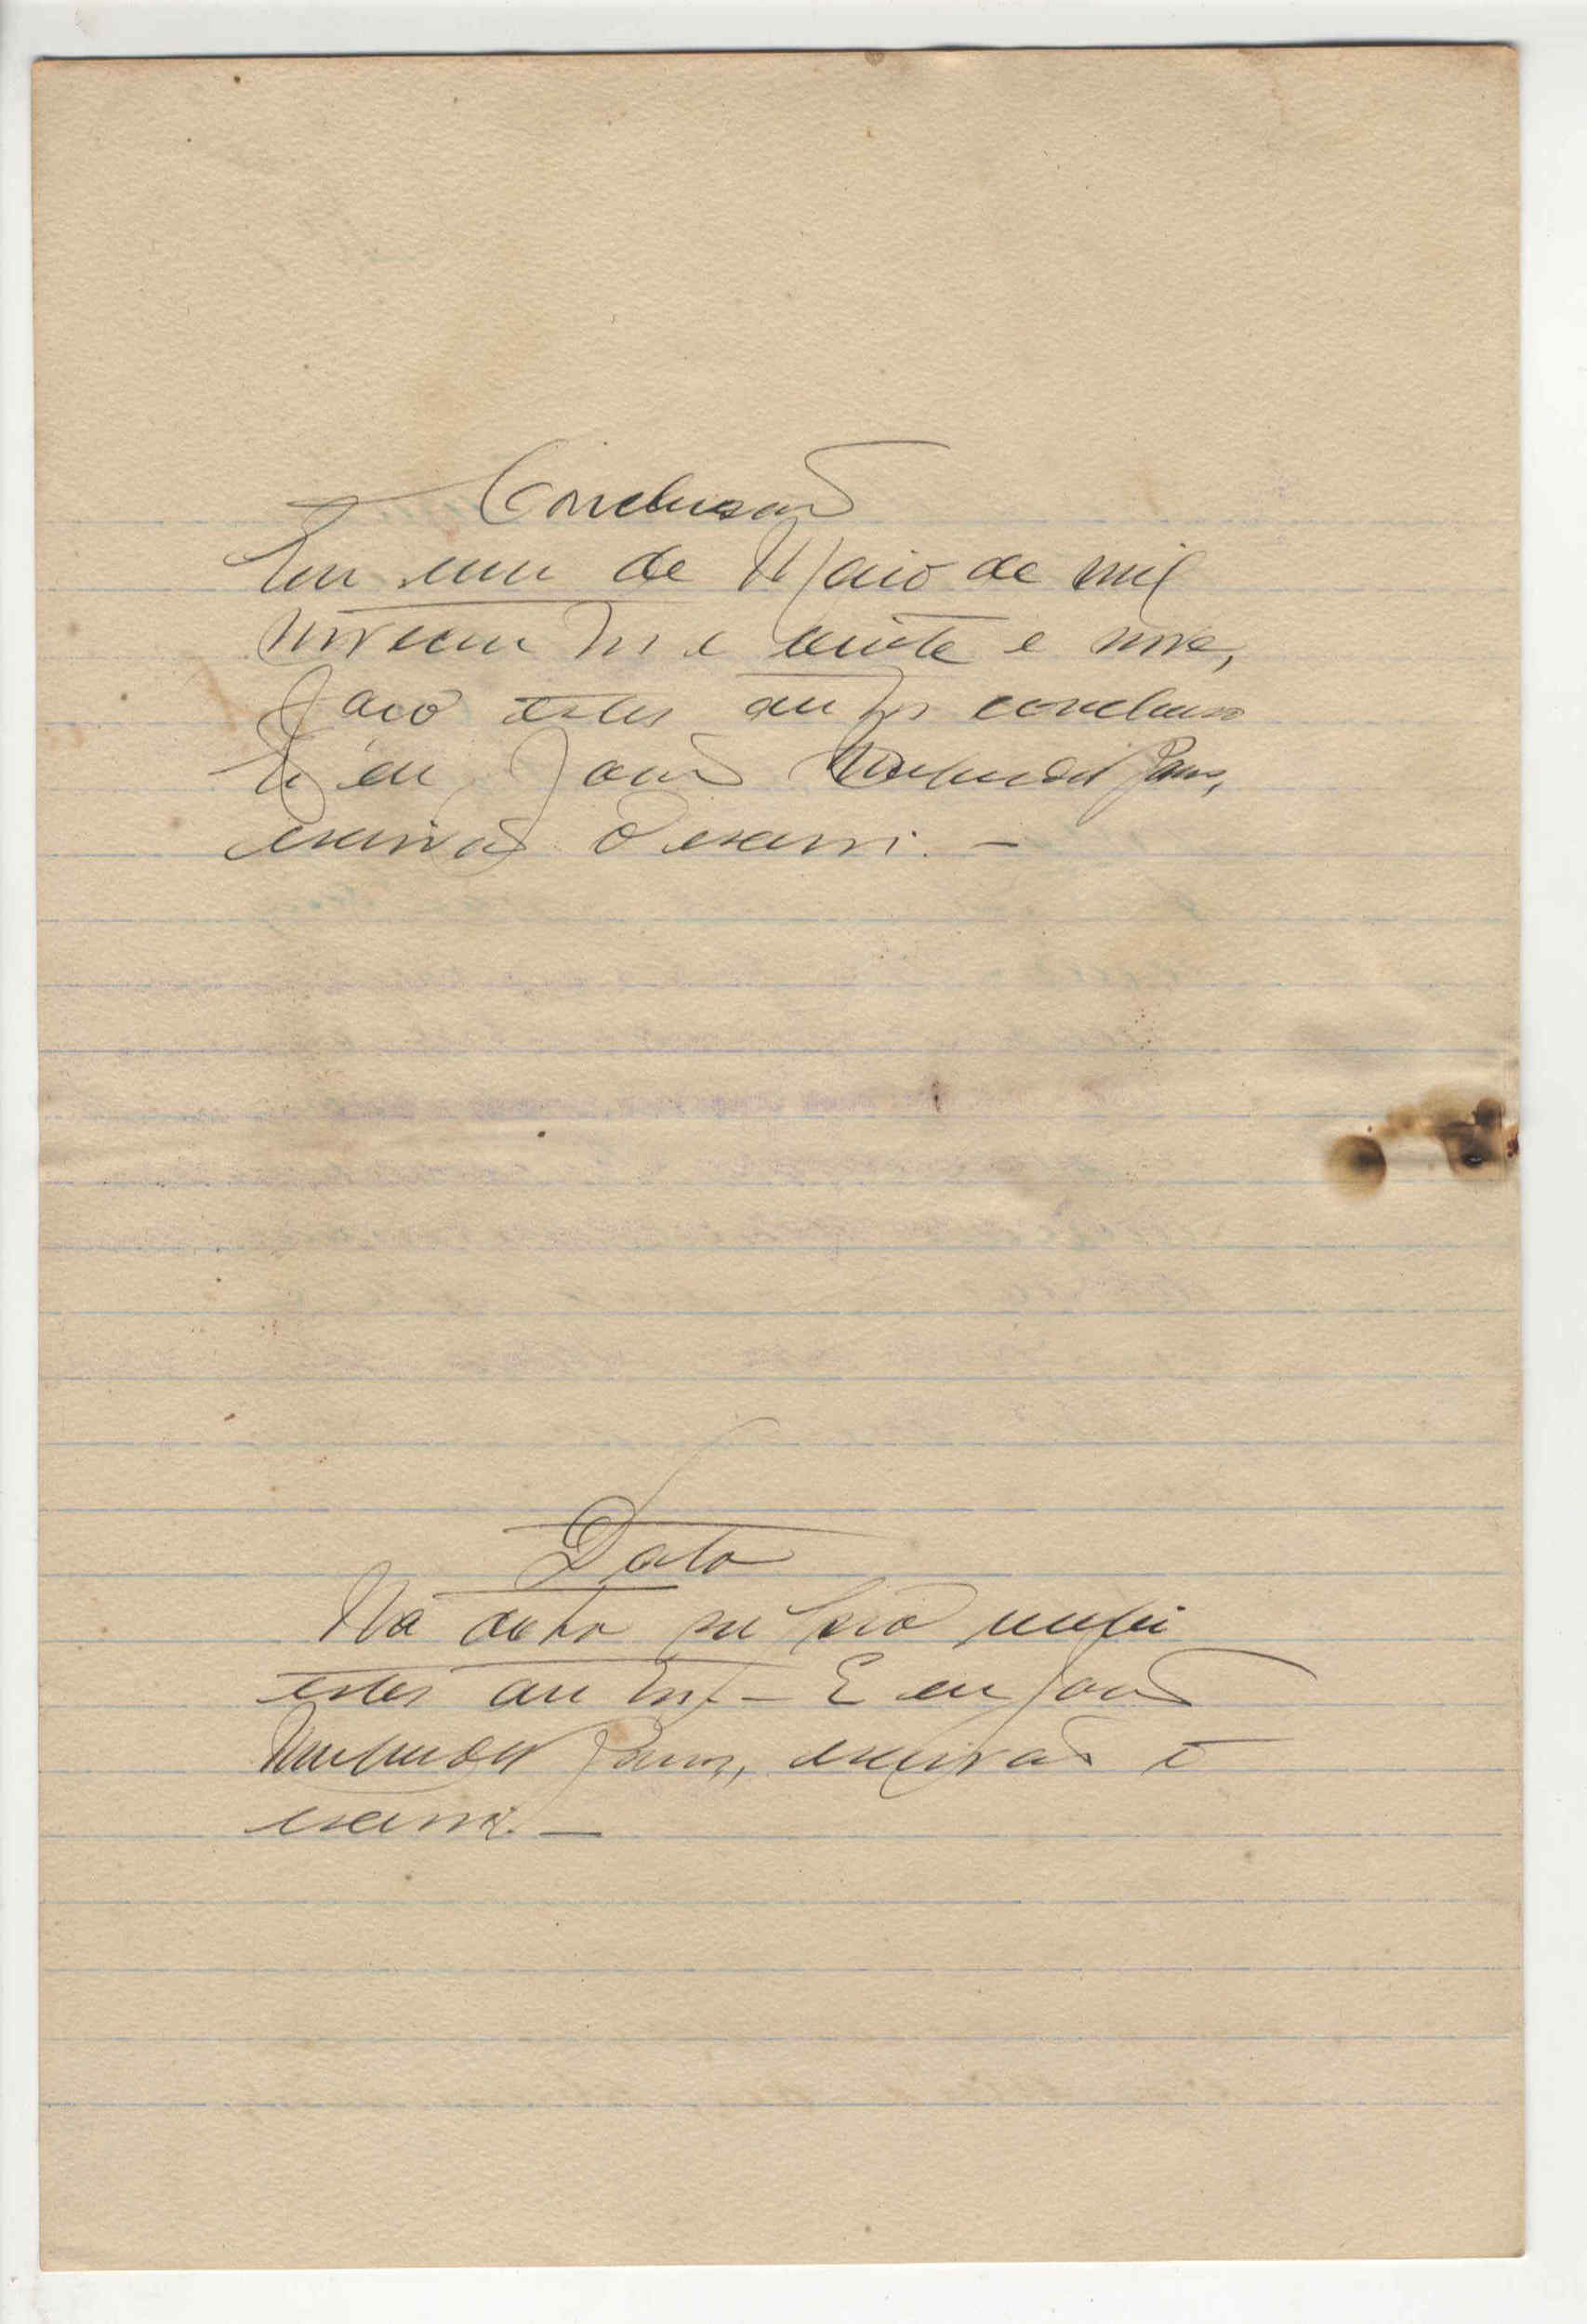 Conclusão
Em um de Maio de mil
novecentos e vinte e nove,
faço estes autos conclusos
E eu João
escrivão o escrevi. —
Data
Na data supra recebi
estes autos. — E eu João
escrivão o
escrevi. —